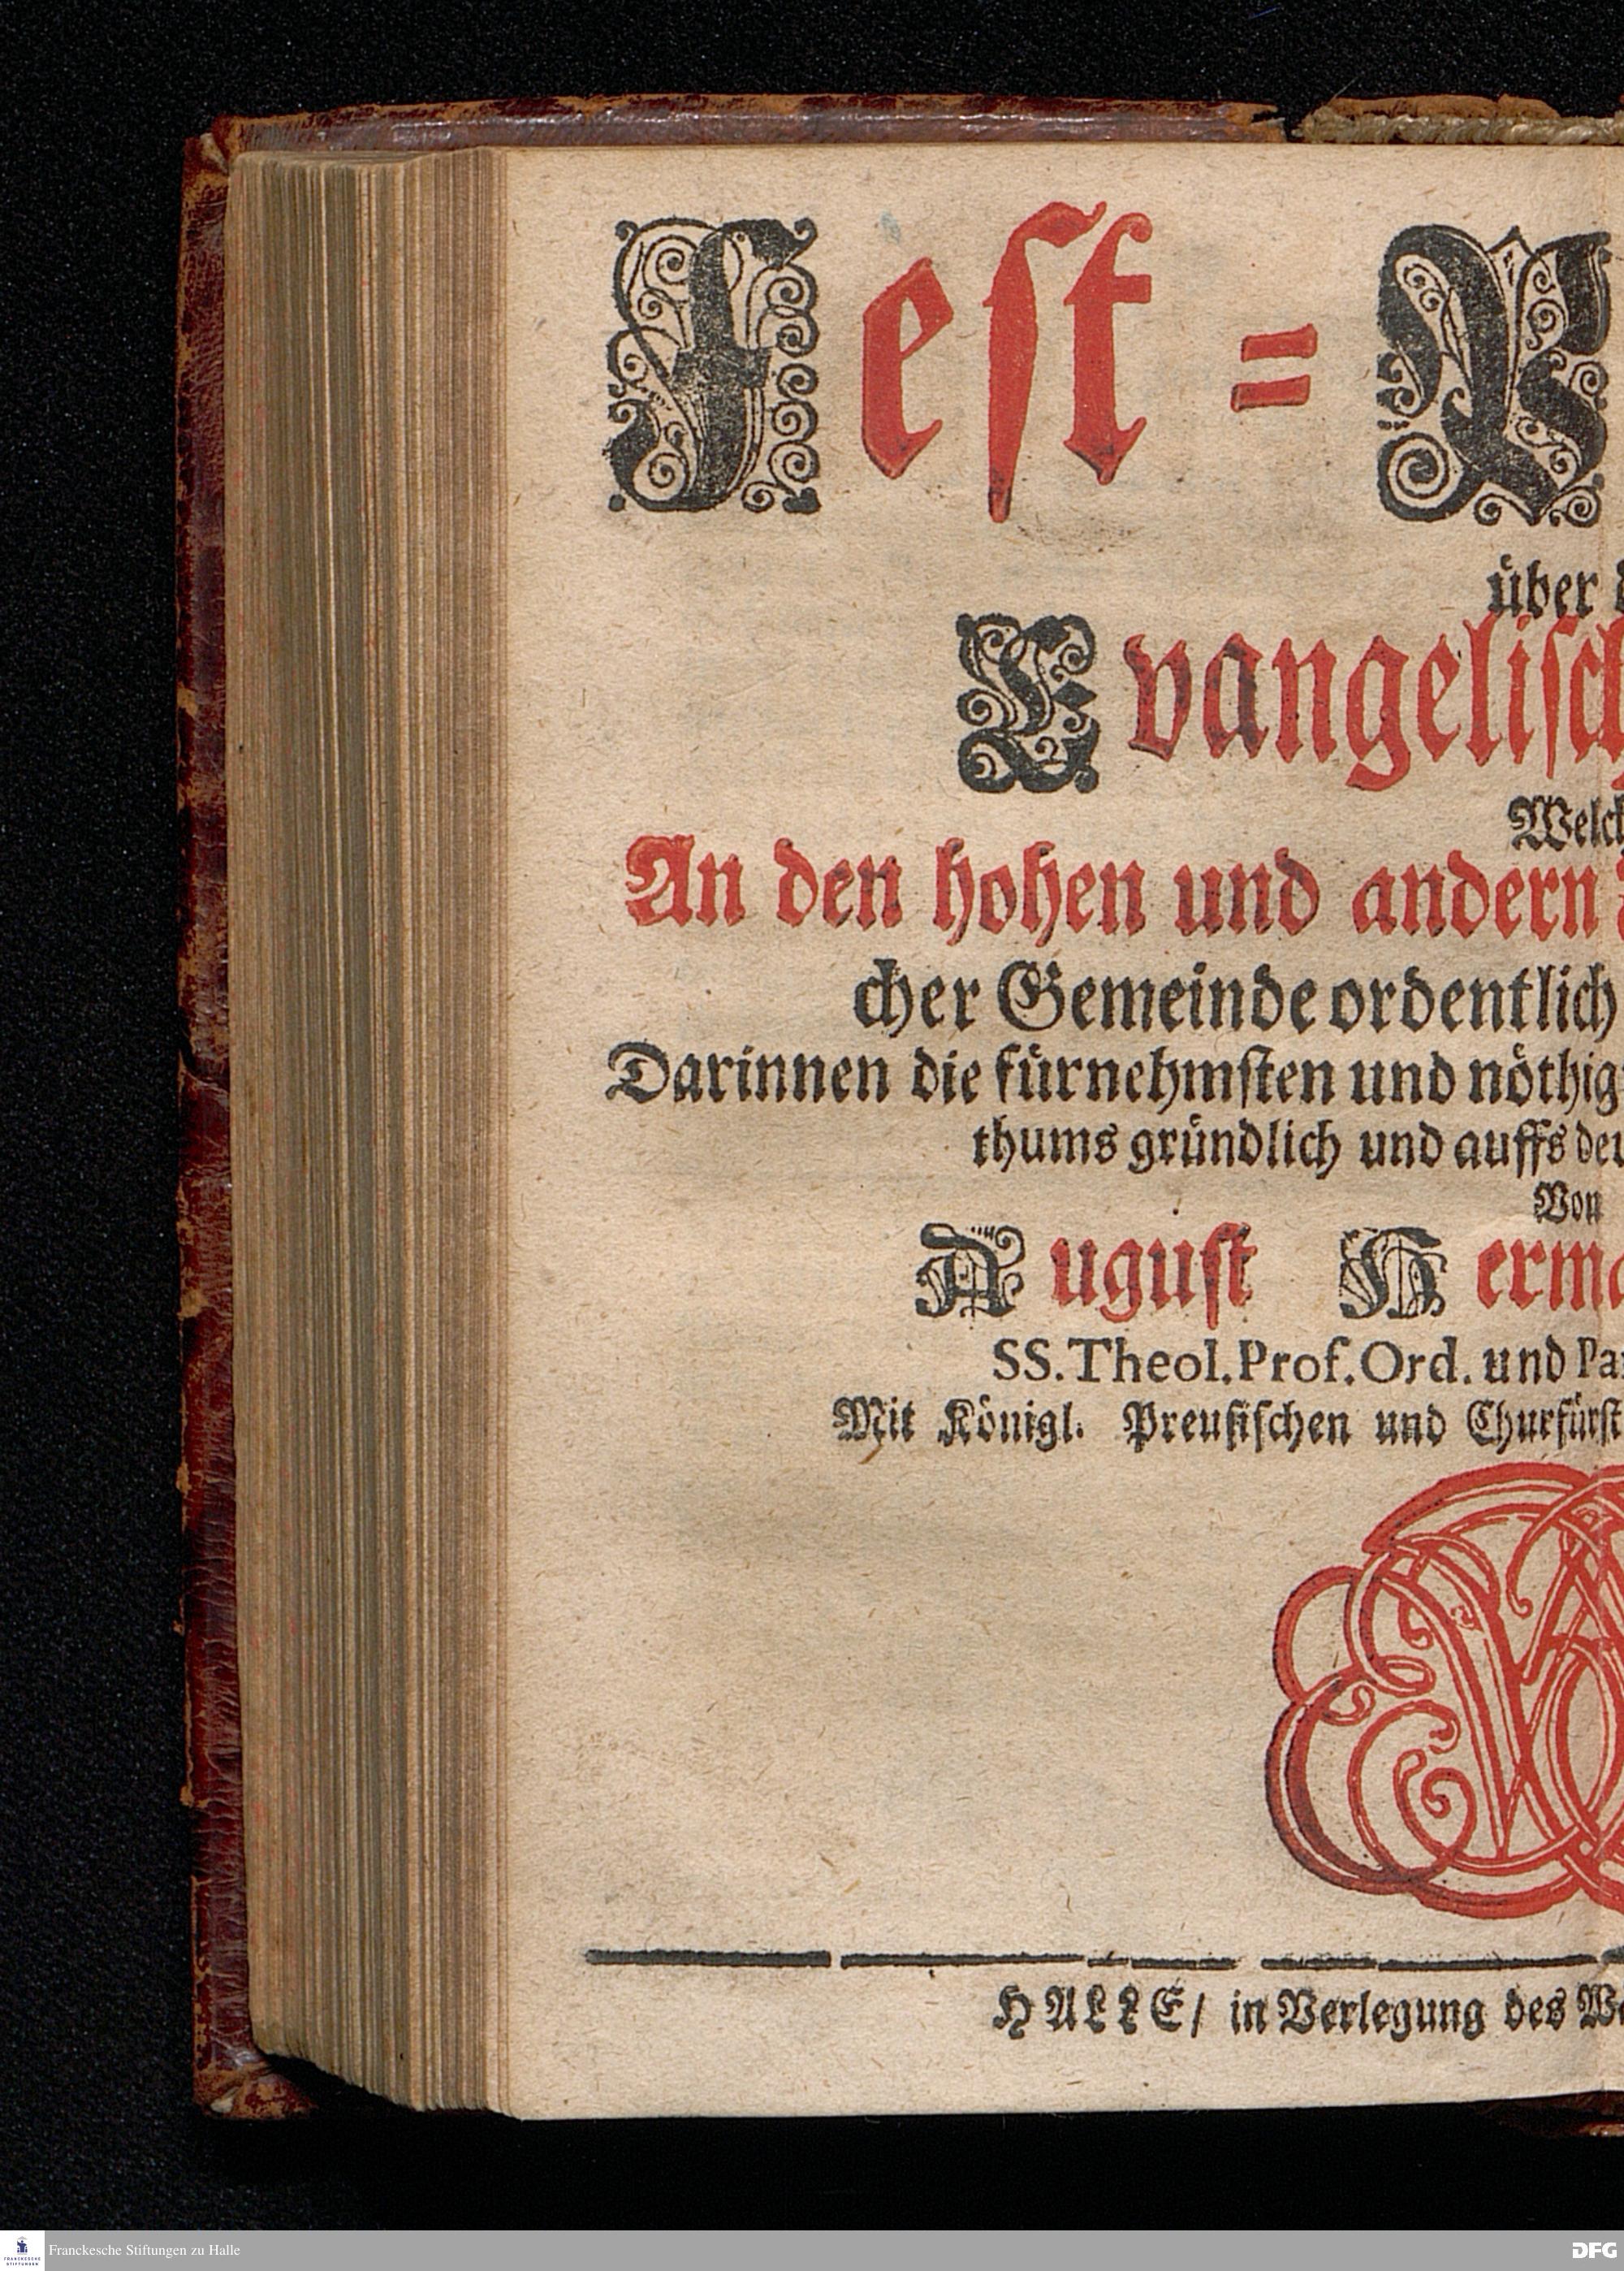 Fest-A
über d
Evangelisch
Welch
An den hohen und andern
cher Gemeinde ordentlich
Darinnen die fürnehmsten und nöthig-
thums gründlich und auffs deu
Von
August Herma
SS. Theol. Prof. Ord. und Pa
Mit Königl. Preußischen und Churfürst
HALLE/ in Verlegung des W
Franckesche Stiftungen zu Halle
FRANCKESCHE
STIFTUNGEN
DFG